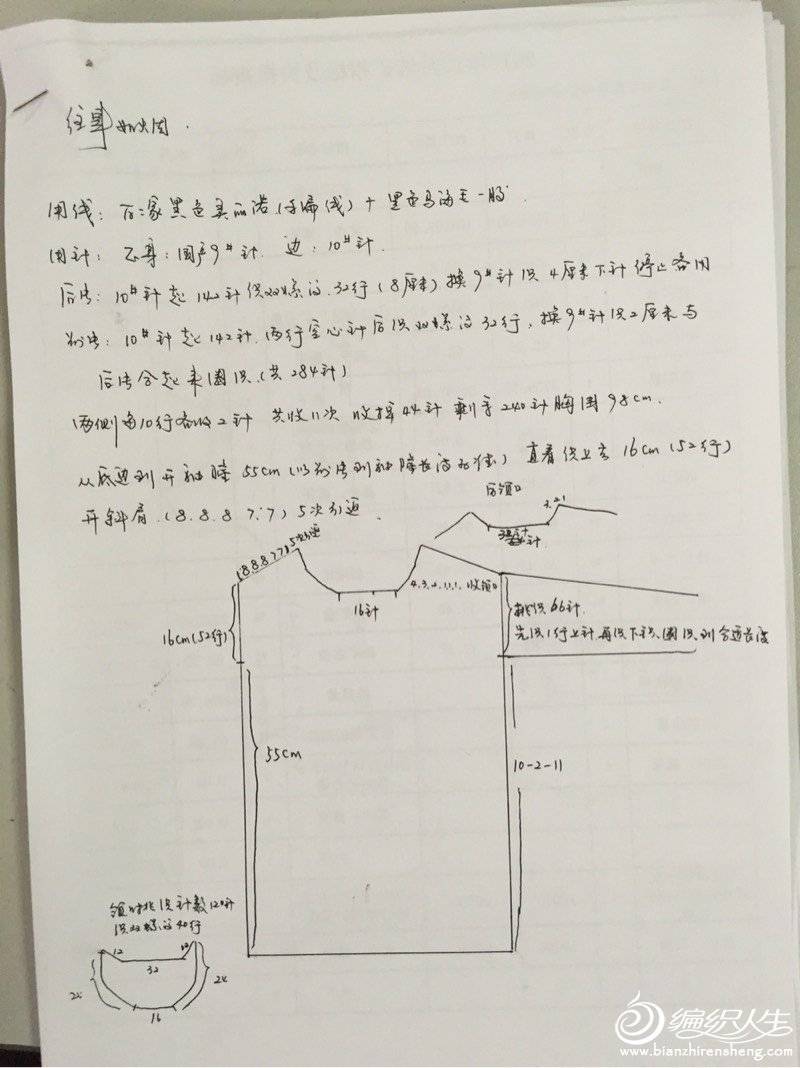 往事如烟.
用线: 百二家黑色美丽诺(手编线) + 黑色马海毛一股
用针: 正身: 国产9#针. 边: 10#针.
后片: 10#针起142针织双螺纹32行(8厘米)换9#针织4厘米下针停止备用
前片: 10#针起142针.两行空心针后织双螺纹32行, 换9#针织2厘米与
后片合起来圈织.(共284针)
两侧每10行各收2针 共收11次 收掉44针 剩余240针胸围98cm.
从底边到开袖隆55cm(以前片到袖隆长度为准) 直着织上去16cm(52行)
开斜肩.(8.8.8 7.7) 5次引返.
后领口
2.2.1
(8 8 8 7 7) 5次引返
16针
4.3.2.1.1.1. 收领口
16cm(52行)
挑织66针.
先织1行上针.再织下针、圈织到合适长度
55cm
10-2-11
领口挑织针数120针
织双螺纹40行
12
32
24
16
编织人生
www.bianzhirensheng.com